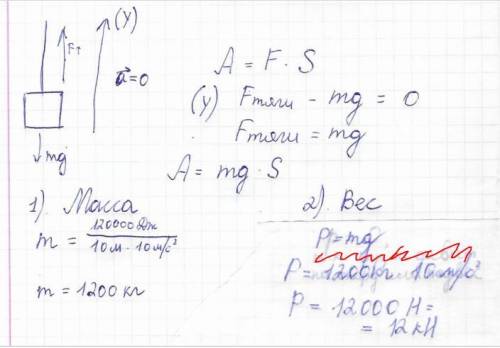 (y)
Fт
a⃗=0
mg
A = F · S
(y) Fтяги - mg = 0
Fтяги = mg
A = mg · S
1) Масса
m = 120000 Дж / 10м · 10м/с²
m = 1200 кг
2) Вес
P=mg
P = 1200кг · 10м/с²
P = 12000 Н =
= 12 кН